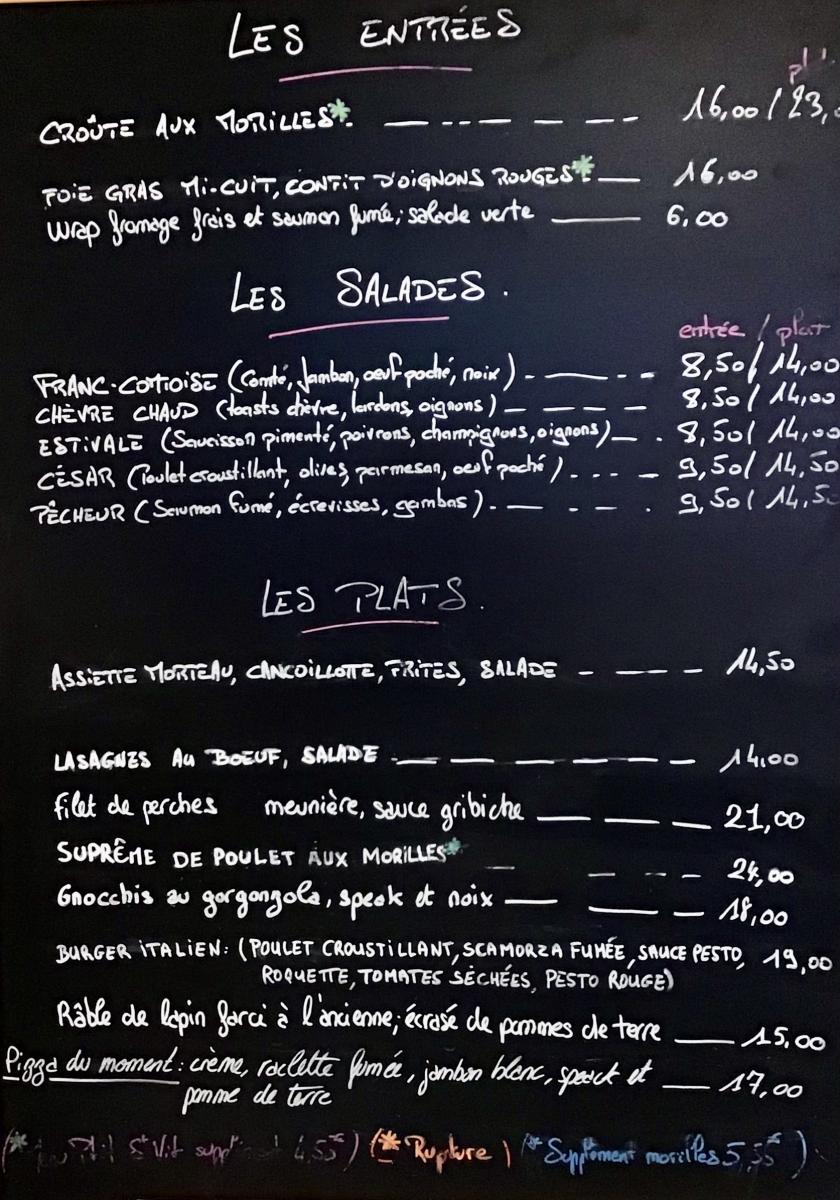 LES ENTRÉES
CROÛTE AUX MORILLES*. 16,00 / 23,
FOIE GRAS MI-CUIT, CONFIT D'OIGNONS ROUGES*. 16,00
Wrap fromage frais et saumon fumé, salade verte 6,00
LES SALADES.
entrée / plat
FRANC-COMTOISE (Comté, Jambon, oeuf poché, noix) 8,50 / 14,00
CHÈVRE CHAUD (toasts chèvre, lardons, oignons) 8,50 / 14,00
ESTIVALE (Saucisson pimenté, poivrons, champignons, oignons) 8,50 / 14,00
CÉSAR (Poulet croustillant, olives, parmesan, oeuf poché) 9,50 / 14,50
PÊCHEUR (Saumon fumé, écrevisses, gambas) 9,50 / 14,50
LES PLATS.
ASSIETTE MORTEAU, CANCOILLOTTE, FRITES, SALADE 14,50
LASAGNES AU BOEUF, SALADE 14,00
filet de perches meunière, sauce gribiche 21,00
SUPRÊME DE POULET AUX MORILLES* 24,00
Gnocchis au gorgongola, speak et noix 18,00
BURGER ITALIEN: (POULET CROUSTILLANT, SCAMORZA FUMÉE, SAUCE PESTO, 19,00
ROQUETTE, TOMATES SÉCHÉES, PESTO ROUGE)
Râble de lapin farci à l'ancienne, écrasé de pommes de terre 15,00
Pizza du moment: crème, raclette fumée, jambon blanc, speack et 17,00
pomme de terre
(* St Vit 4,55€) (* Rupture) (* Supplément morilles 5,55€)